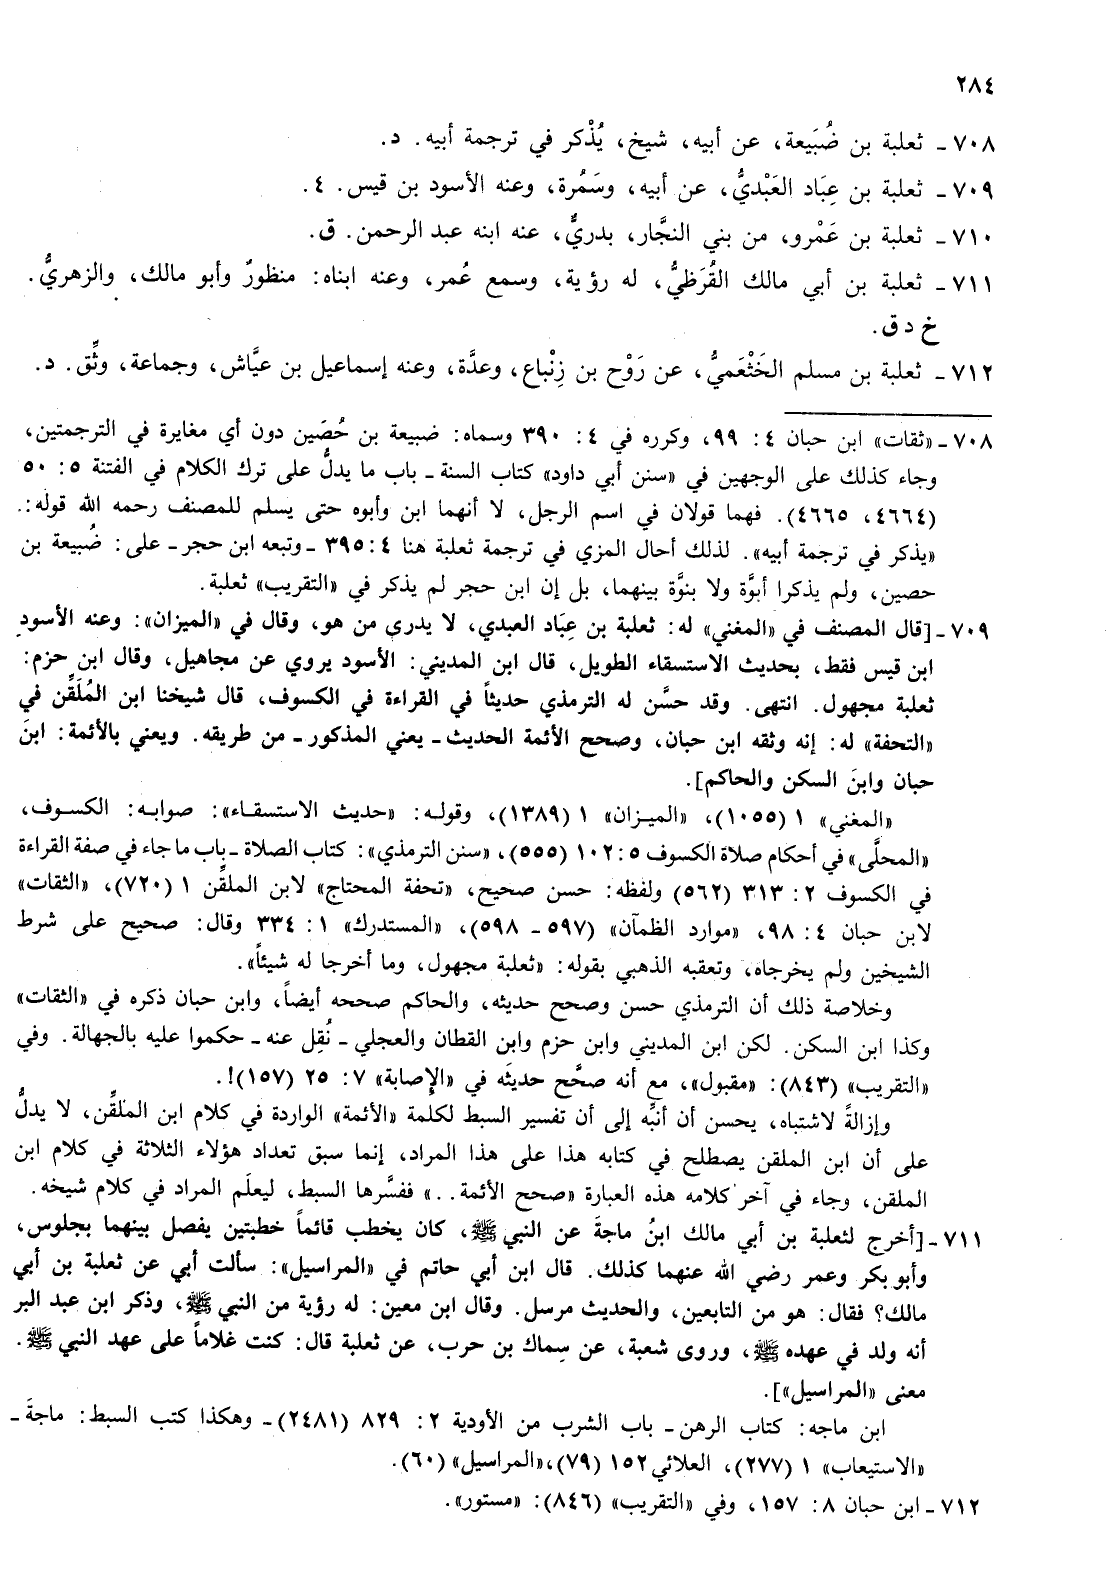 ٢٨٤
٧٠٨ ـ ثعلبة بن ضُبَيعة، عن أبيه، شيخ، يُذْكر في ترجمة أبيه. د.
٧٠٩ ـ ثعلبة بن عِبَاد العَبْديُّ، عن أبيه، وسَمُرة، وعنه الأسود بن قيس. ٤.
٧١٠ ـ ثعلبة بن عَمْرو، من بني النجَّار، بدريٌّ، عنه ابنه عبد الرحمن. ق.
٧١١ ـ ثعلبة بن أبي مالك القُرَظيُّ، له رؤية، وسمع عُمر، وعنه ابناه: منظورٌ وأبو مالك، والزهريُّ.
خ د ق.
٧١٢ ـ ثعلبة بن مسلم الخَثْعَميُّ، عن رَوْح بن زِنْباع، وعدَّة، وعنه إسماعيل بن عيَّاش، وجماعة، وثِّق. د.
٧٠٨ ـ «ثقات» ابن حبان ٤: ٩٩، وكرره في ٤: ٣٩٠ وسماه: ضبيعة بن حُصَين دون أي مغايرة في الترجمتين،
وجاء كذلك على الوجهين في «سنن أبي داود» كتاب السنة ـ باب ما يدلُّ على ترك الكلام في الفتنة ٥: ٥٠
(٤٦٦٤، ٤٦٦٥). فهما قولان في اسم الرجل، لا أنهما ابن وأبوه حتى يسلم للمصنف رحمه الله قوله:.
«يذكر في ترجمة أبيه». لذلك أحال المزي في ترجمة ثعلبة هنا ٤: ٣٩٥ ـ وتبعه ابن حجر ـ على: ضُبيعة بن
حصين، ولم يذكرا أبوَّة ولا بنوَّة بينهما، بل إن ابن حجر لم يذكر في «التقريب» ثعلبة.
٧٠٩ ـ [قال المصنف في «المغني» له: ثعلبة بن عِبَاد العبدي، لا يدرى من هو، وقال في «الميزان»: وعنه الأسود
ابن قيس فقط، بحديث الاستسقاء الطويل، قال ابن المديني: الأسود يروي عن مجاهيل، وقال ابن حزم:
ثعلبة مجهول. انتهى. وقد حسَّن له الترمذي حديثاً في القراءة في الكسوف، قال شيخنا ابن المُلَقِّن في
«التحفة» له: إنه وثقه ابن حبان، وصحح الأئمة الحديث ـ يعني المذكور ـ من طريقه. ويعني بالأئمة: ابنَ
حبان وابنَ السكن والحاكم].
«المغني» ١ (١٠٥٥)، «الميزان» ١ (١٣٨٩)، وقوله: «حديث الاستسقاء»: صوابه: الكسوف،
«المحلَّى» في أحكام صلاة الكسوف ٥: ١٠٢ (٥٥٥)، «سنن الترمذي»: كتاب الصلاة ـ باب ما جاء في صفة القراءة
في الكسوف ٢: ٣١٣ (٥٦٢) ولفظه: حسن صحيح، «تحفة المحتاج» لابن الملقِّن ١ (٧٢٠)، «الثقات»
لابن حبان ٤: ٩٨، «موارد الظمآن» (٥٩٧ ـ ٥٩٨)، «المستدرك» ١: ٣٣٤ وقال: صحيح على شرط
الشيخين ولم يخرجاه، وتعقبه الذهبي بقوله: «ثعلبة مجهول، وما أخرجا له شيئاً».
وخلاصة ذلك أن الترمذي حسن وصحح حديثه، والحاكم صححه أيضاً، وابن حبان ذكره في «الثقات»
وكذا ابن السكن. لكن ابن المديني وابن حزم وابن القطان والعجلي ـ نُقِل عنه ـ حكموا عليه بالجهالة. وفي
«التقريب» (٨٤٣): «مقبول»، مع أنه صحَّح حديثَه في «الإصابة» ٧: ٢٥ (١٥٧)!.
وإزالةً لاشتباه، يحسن أن أنبِّه إلى أن تفسير السبط لكلمة «الأئمة» الواردة في كلام ابن الملقِّن، لا يدلُّ
على أن ابن الملقن يصطلح في كتابه هذا على هذا المراد، إنما سبق تعداد هؤلاء الثلاثة في كلام ابن
الملقن، وجاء في آخر كلامه هذه العبارة «صحح الأئمة..» ففسَّرها السبط، ليعلَم المراد في كلام شيخه.
٧١١ ـ [أخرج لثعلبة بن أبي مالك ابنُ ماجةَ عن النبي ﷺ، كان يخطب قائماً خطبتين يفصل بينهما بجلوس،
وأبو بكر وعمر رضي الله عنهما كذلك. قال ابن أبي حاتم في «المراسيل»: سألت أبي عن ثعلبة بن أبي
مالك؟ فقال: هو من التابعين، والحديث مرسل. وقال ابن معين: له رؤية من النبي ﷺ، وذكر ابن عبد البر
أنه ولد في عهده ﷺ، وروى شعبة، عن سِماك بن حرب، عن ثعلبة قال: كنت غلاماً على عهد النبي ﷺ.
معنى «المراسيل»].
ابن ماجه: كتاب الرهن ـ باب الشرب من الأودية ٢: ٨٢٩ (٢٤٨١) ـ وهكذا كتب السبط: ماجةَ ـ
«الاستيعاب» ١ (٢٧٧)، العلائي ١٥٢ (٧٩)، «المراسيل» (٦٠).
٧١٢ ـ ابن حبان ٨: ١٥٧، وفي «التقريب» (٨٤٦): «مستور».